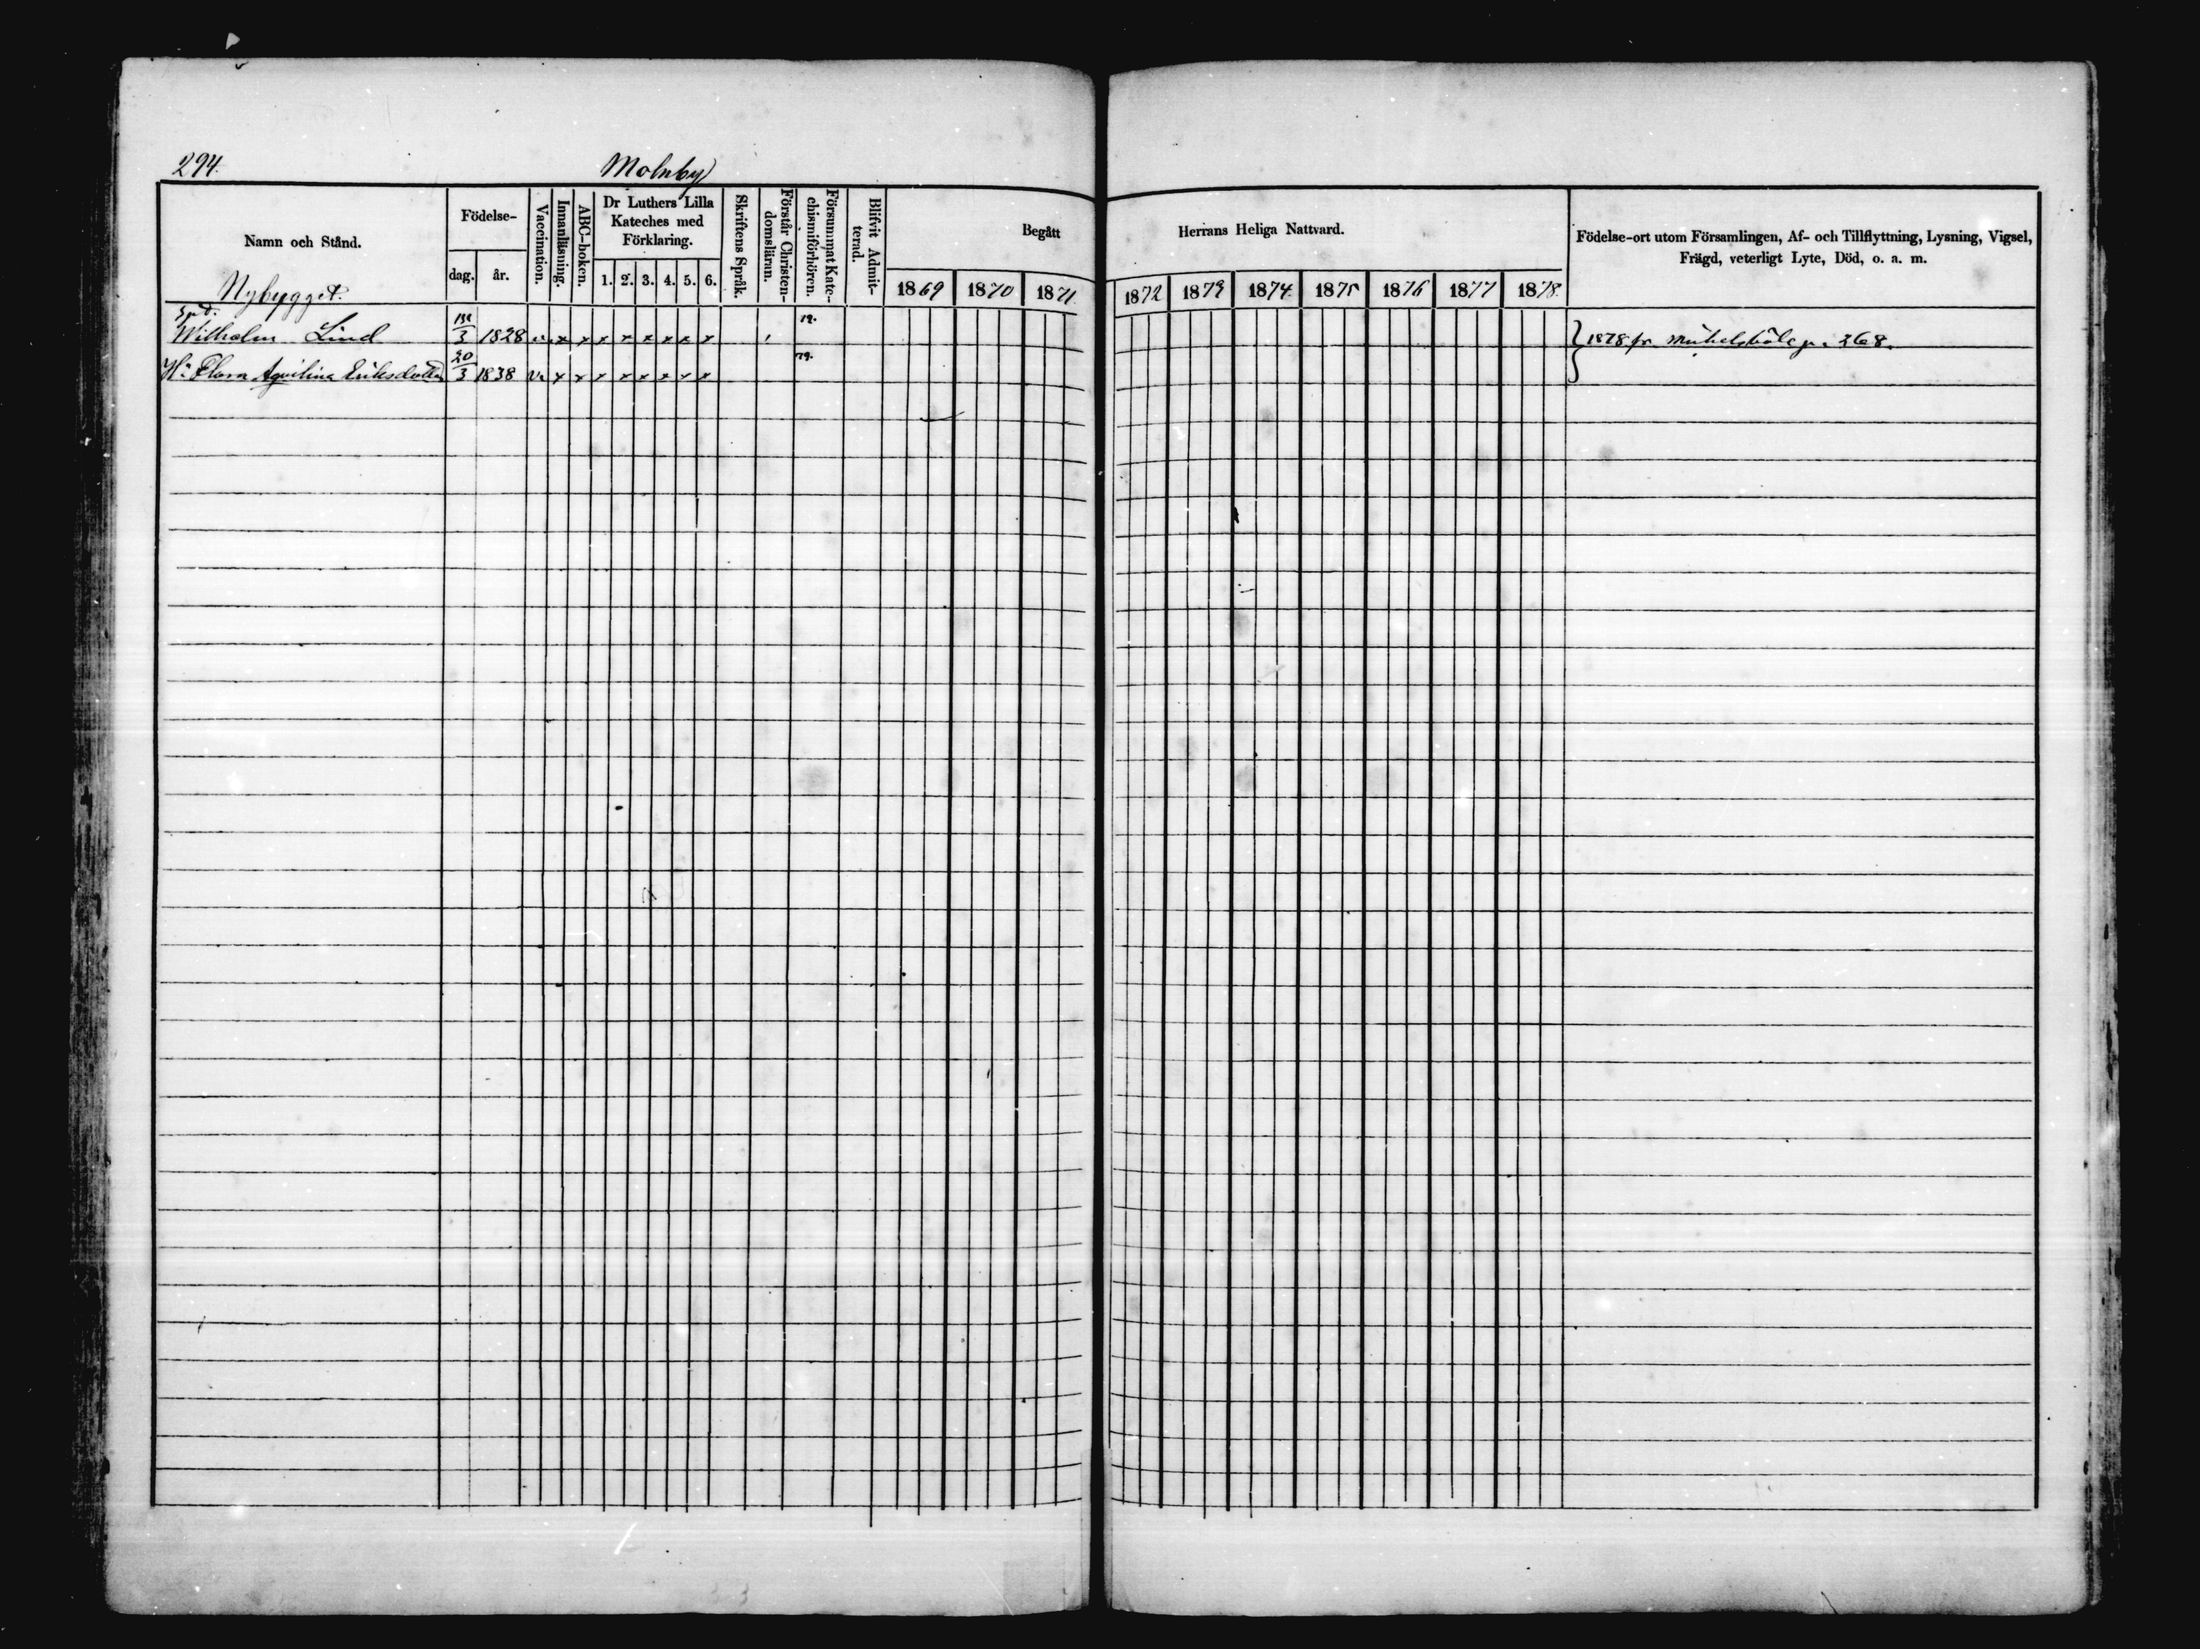 294.
Molnby
Namn och Stånd.
Födelse-
dag. år.
Vaccination.
Innanläsning.
ABC-boken.
Dr Luthers Lilla
Kateches med
Förklaring.
1. 2. 3. 4. 5. 6.
Skriftens Språk.
Förstår Christen-
domsläran.
Försummat Kate-
chismiförhören.
Blifvit Admit-
terad.
Begått Herrans Heliga Nattvard.
1869 1870 1871 1872 1873 1874 1875 1876 1877 1878
Födelse-ort utom Församlingen, Af- och Tillflyttning, Lysning, Vigsel,
Frägd, veterligt Lyte, Död, o. a. m.
Nybygget.
Wilhelm Lind 3 1828 v. x x x x x x x x 79. 1878 fr. p. 268.
Hu Flora Aqvilina Eriksdotter 20/3 1838 v. x x x x x x x x 79.